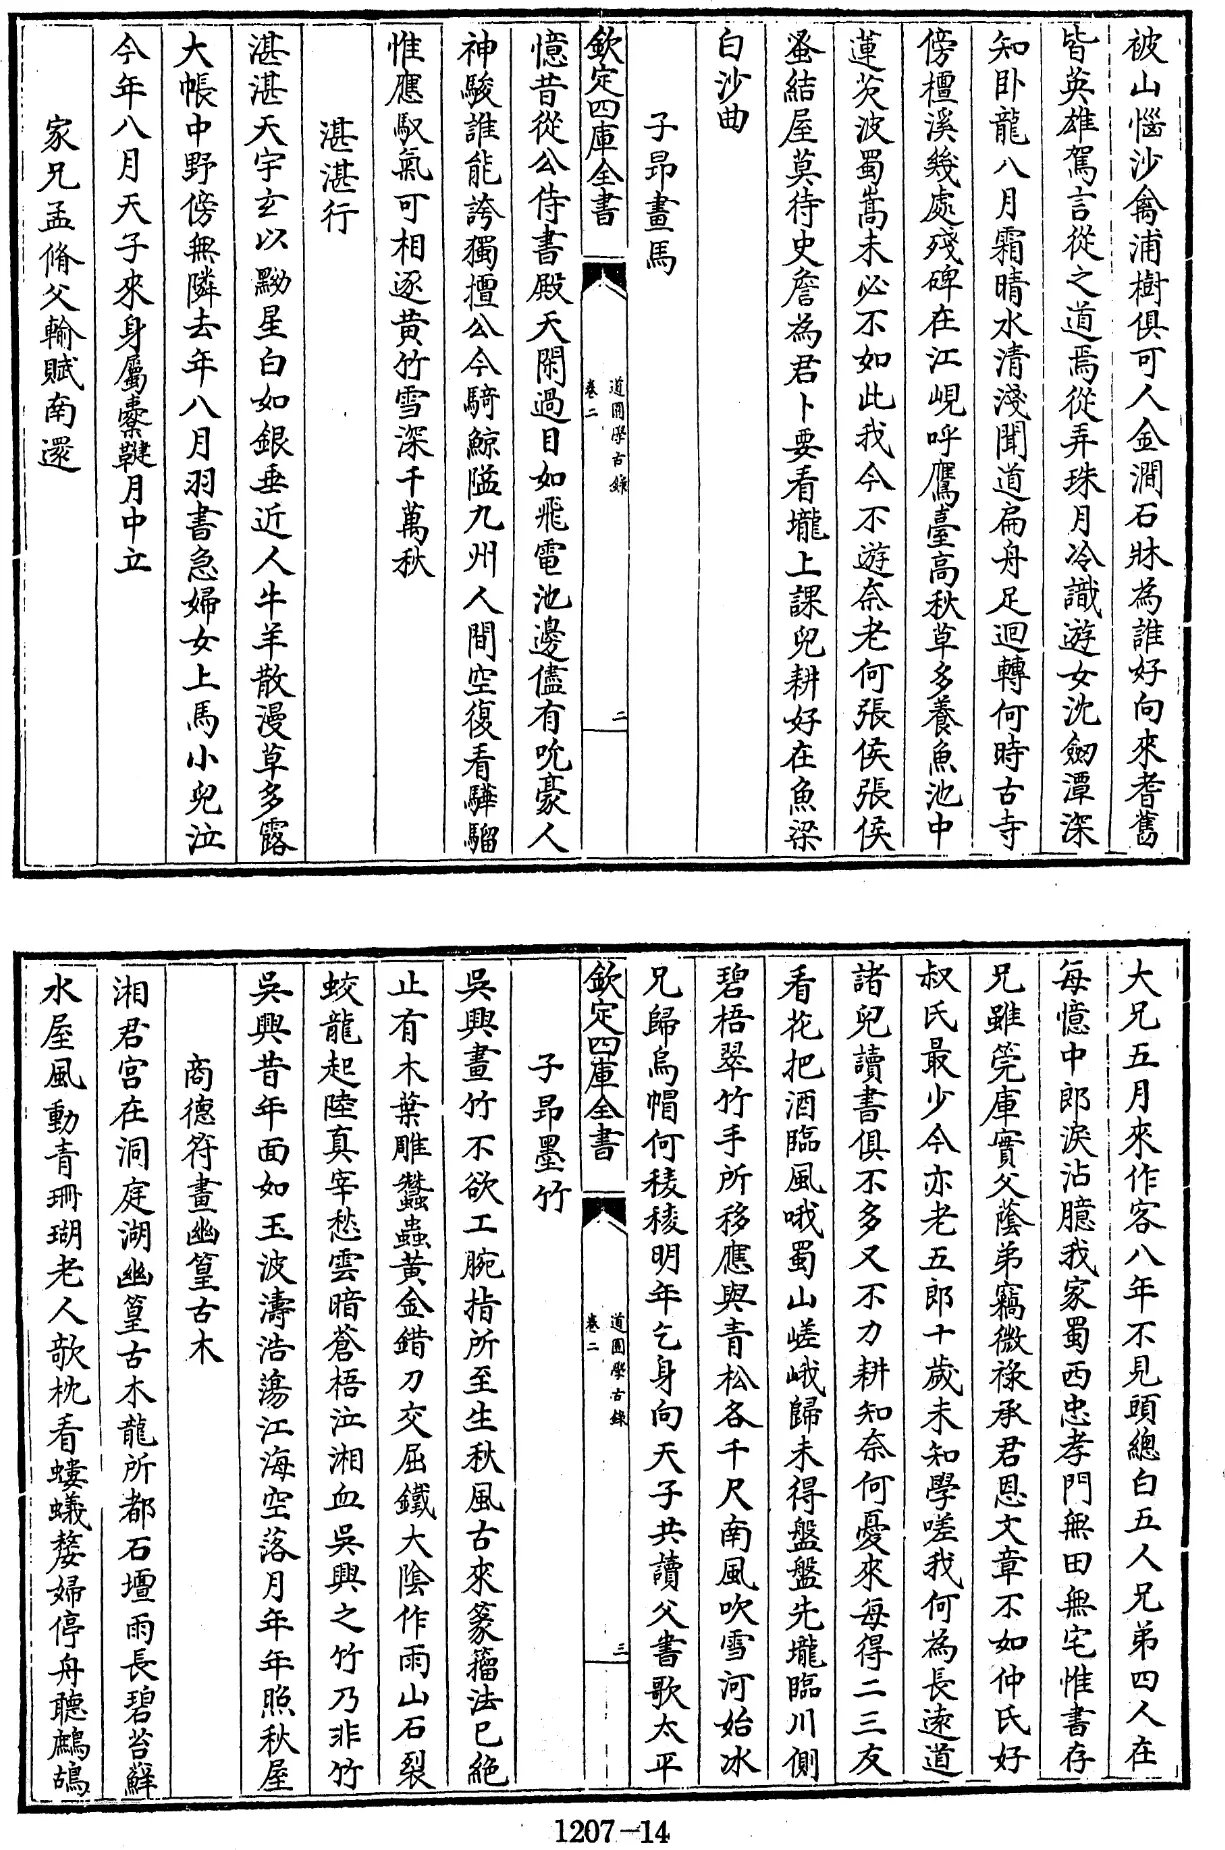 被山惱沙禽浦樹俱可人金澗石牀為誰好向來耆舊
皆英雄駕言從之道焉從弄珠月冷識遊女沈劒潭深
知卧龍八月霜晴水清淺聞道扁舟足迴轉何時古寺
傍檀溪幾處殘碑在江峴呼鷹臺高秋草多養魚池中
蓮芡波蜀嵩未必不如此我今不遊奈老何張侯張侯
蚤結屋莫待史詹為君卜要看壠上課兒耕好在魚梁
白沙曲
子昂畫馬
欽定四庫全書
道園學古錄
卷二
二
憶昔從公侍書殿天閑過目如飛電池邊儘有吮豪人
神駿誰能誇獨擅公今騎鯨隘九州人間空復看驊騮
惟應馭氣可相逐黃竹雪深千萬秋
湛湛行
湛湛天宇玄以黝星白如銀垂近人牛羊散漫草多露
大帳中野傍無隣去年八月羽書急婦女上馬小兒泣
今年八月天子來身屬櫜鞬月中立
家兄孟脩父輸賦南還
大兄五月來作客八年不見頭總白五人兄弟四人在
每憶中郎淚沾臆我家蜀西忠孝門無田無宅惟書存
兄雖筦庫實父蔭弟竊微祿承君恩文章不如仲氏好
叔氏最少今亦老五郎十歲未知學嗟我何為長遠道
諸兒讀書俱不多又不力耕知奈何憂來每得二三友
看花把酒臨風哦蜀山嵯峨歸未得盤盤先壠臨川側
碧梧翠竹手所移應與青松各千尺南風吹雪河始冰
兄歸烏帽何稜稜明年乞身向天子共讀父書歌太平
欽定四庫全書
道園學古錄
卷二
三
子昂墨竹
吳興畫竹不欲工腕指所至生秋風古來篆籀法已絶
止有木葉雕蠶蟲黃金錯刀交屈鐵大陰作雨山石裂
蛟龍起陸真宰愁雲暗蒼梧泣湘血吳興之竹乃非竹
吳興昔年面如玉波濤浩蕩江海空落月年年照秋屋
商德符畫幽篁古木
湘君宮在洞庭湖幽篁古木龍所都石壇雨長碧苔蘚
水屋風動青珊瑚老人欹枕看螻蟻嫠婦停舟聽鷓鴣
1207-14